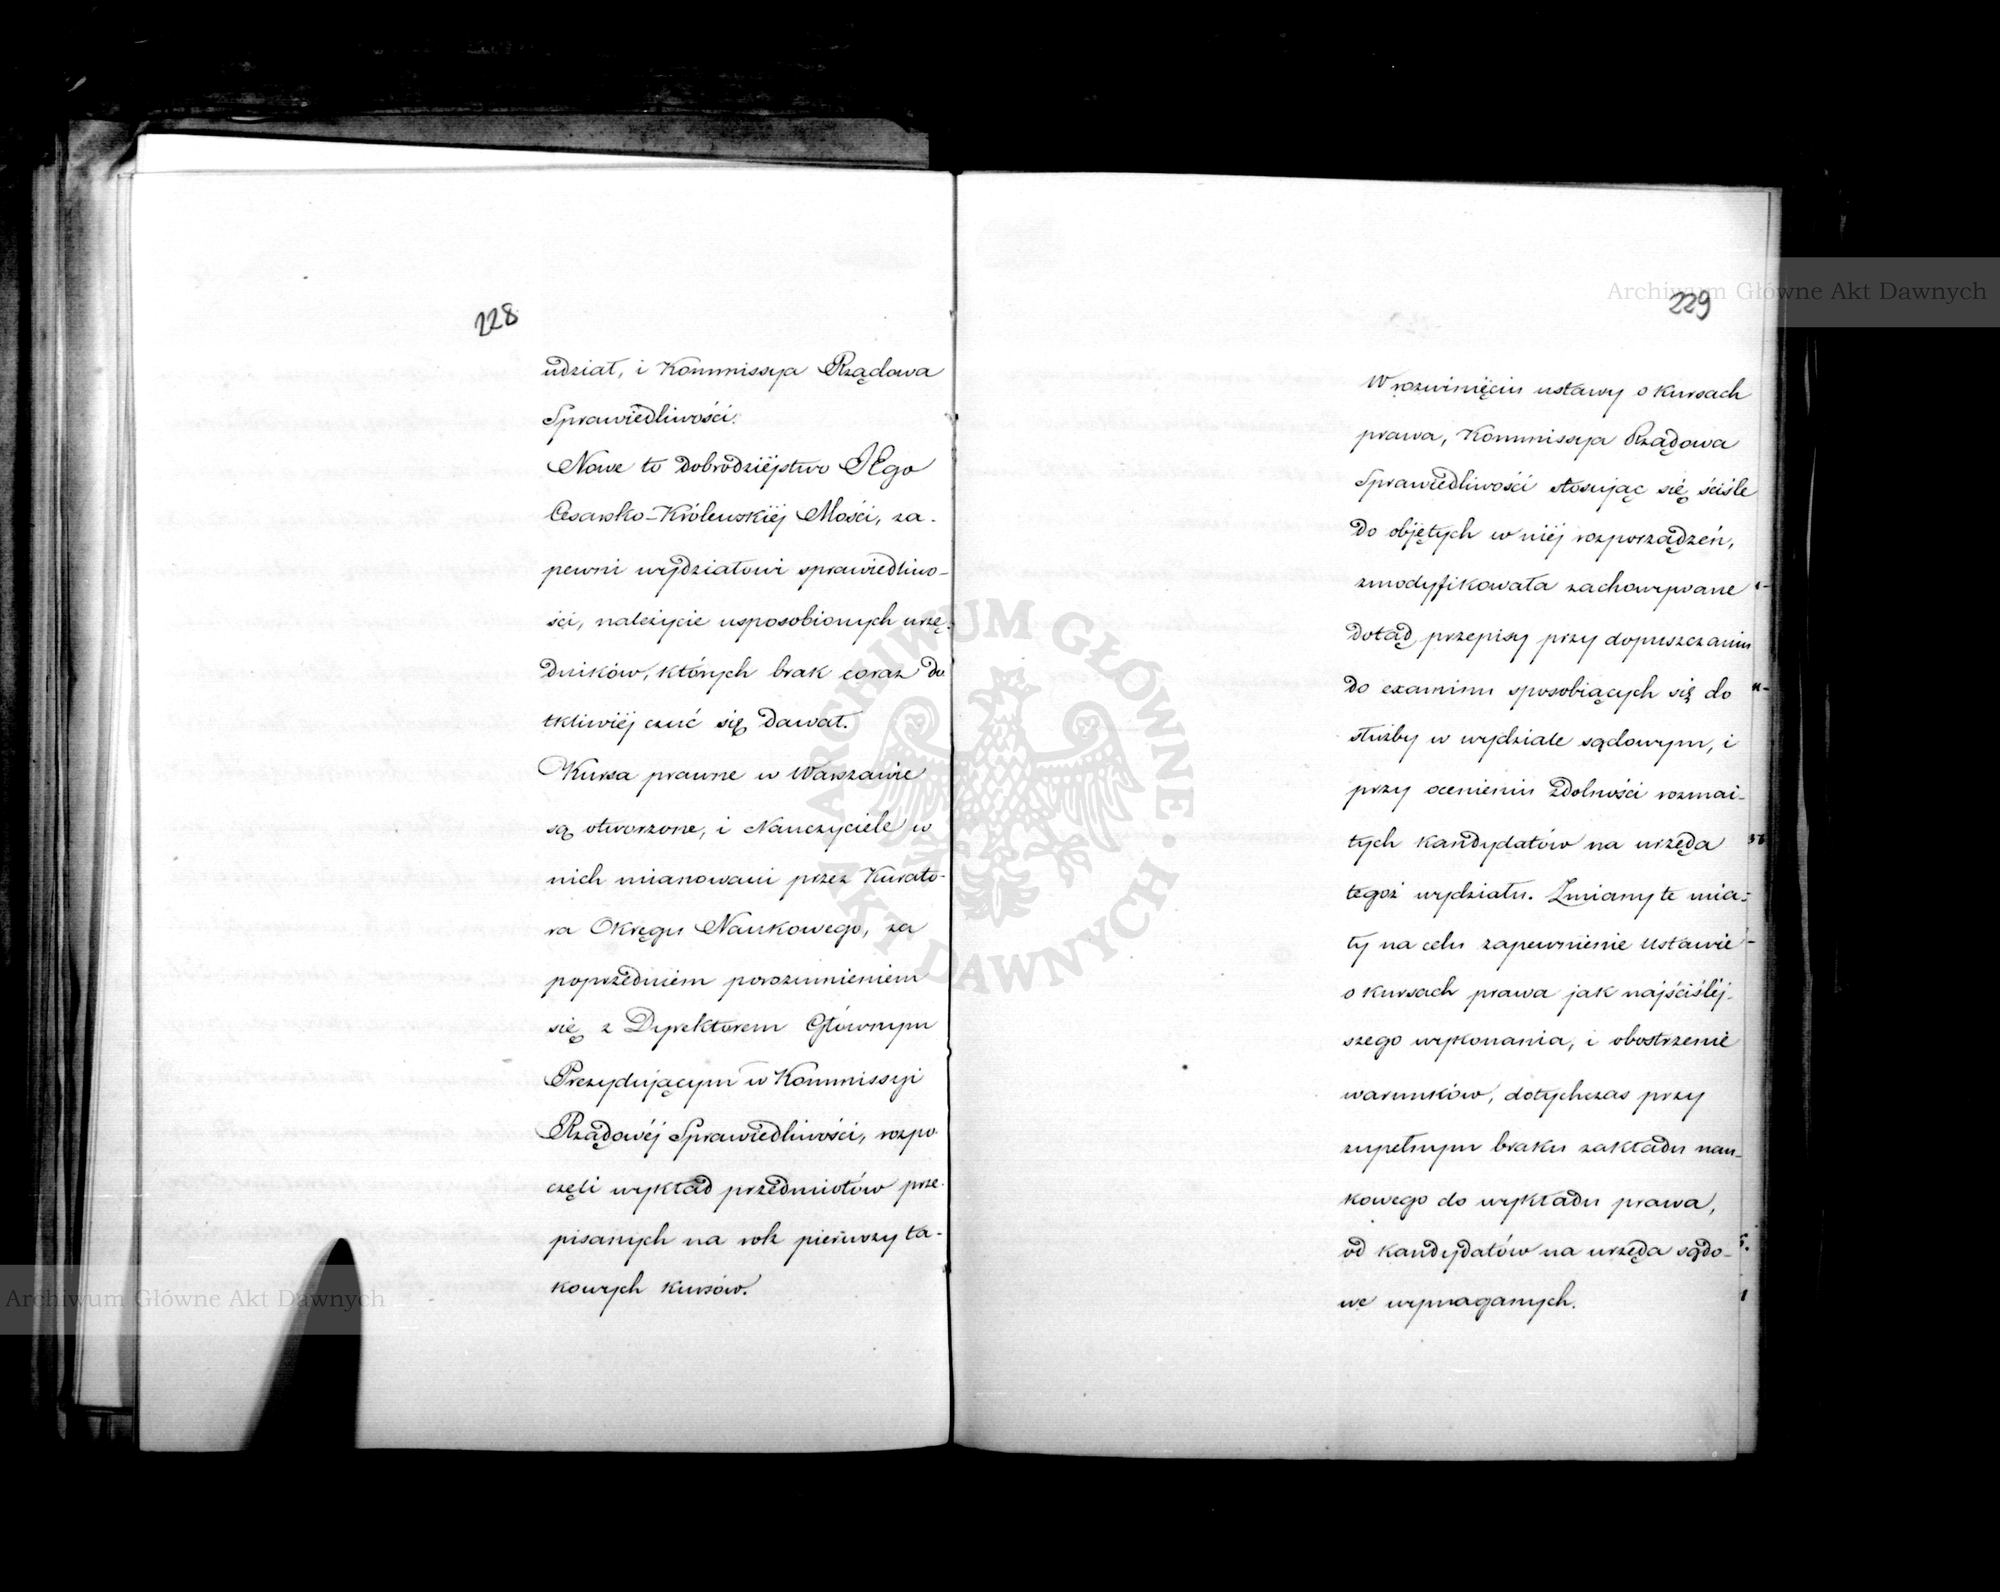 228
udział, i Kommissya Rządowa
Sprawiedliwości.
Nowe to dobrodziéjstwo JEgo
Cesarsko-Królewskiéj Mości, za-
pewni wydziałowi sprawiedliwo-
ści, należycie usposobionych urzę-
dników, których brak coraz do
tkliwiéj czuć się dawał.
Kursa prawne w Warszawie
są otworzone, i Nauczyciele w
nich mianowani przez Kurato-
ra Okręgu Naukowego, za
poprzedniem porozumieniem
się z Dyrektorem Głównym
Prezydującym w Kommissyi
Rządowéj Sprawiedliwości, rozpo
częli wykład przedmiotów prze-
pisanych na rok pierwszy ta-
kowych kursów.
229
W rozwinięciu ustawy o kursach
prawa, Kommissya Rządowa
Sprawiedliwości stosując się ściśle
do objętych w niéj rozporządzeń,
zmodyfikowała zachowywane
dotąd przepisy przy dopuszczaniu
do examinu sposobiących się do
służby w wydziale sądowym, i
przy ocenieniu zdolności rozmai-
tych kandydatów na urzęda
tegoż wydziału. Zmiany te mia-
ły na celu zapewnienie ustawie
o kursach prawa jak najściśléj-
szego wykonania, i obostrzenie
warunków, dotychczas przy
zupełnym braku zakładu nau-
kowego do wykładu prawa,
od kandydatów na urzęda sądo-
we wymaganych.
Archiwum Główne Akt Dawnych
ARCHIWUM GŁÓWNE · AKT DAWNYCH ·
Archiwum Główne Akt Dawnych